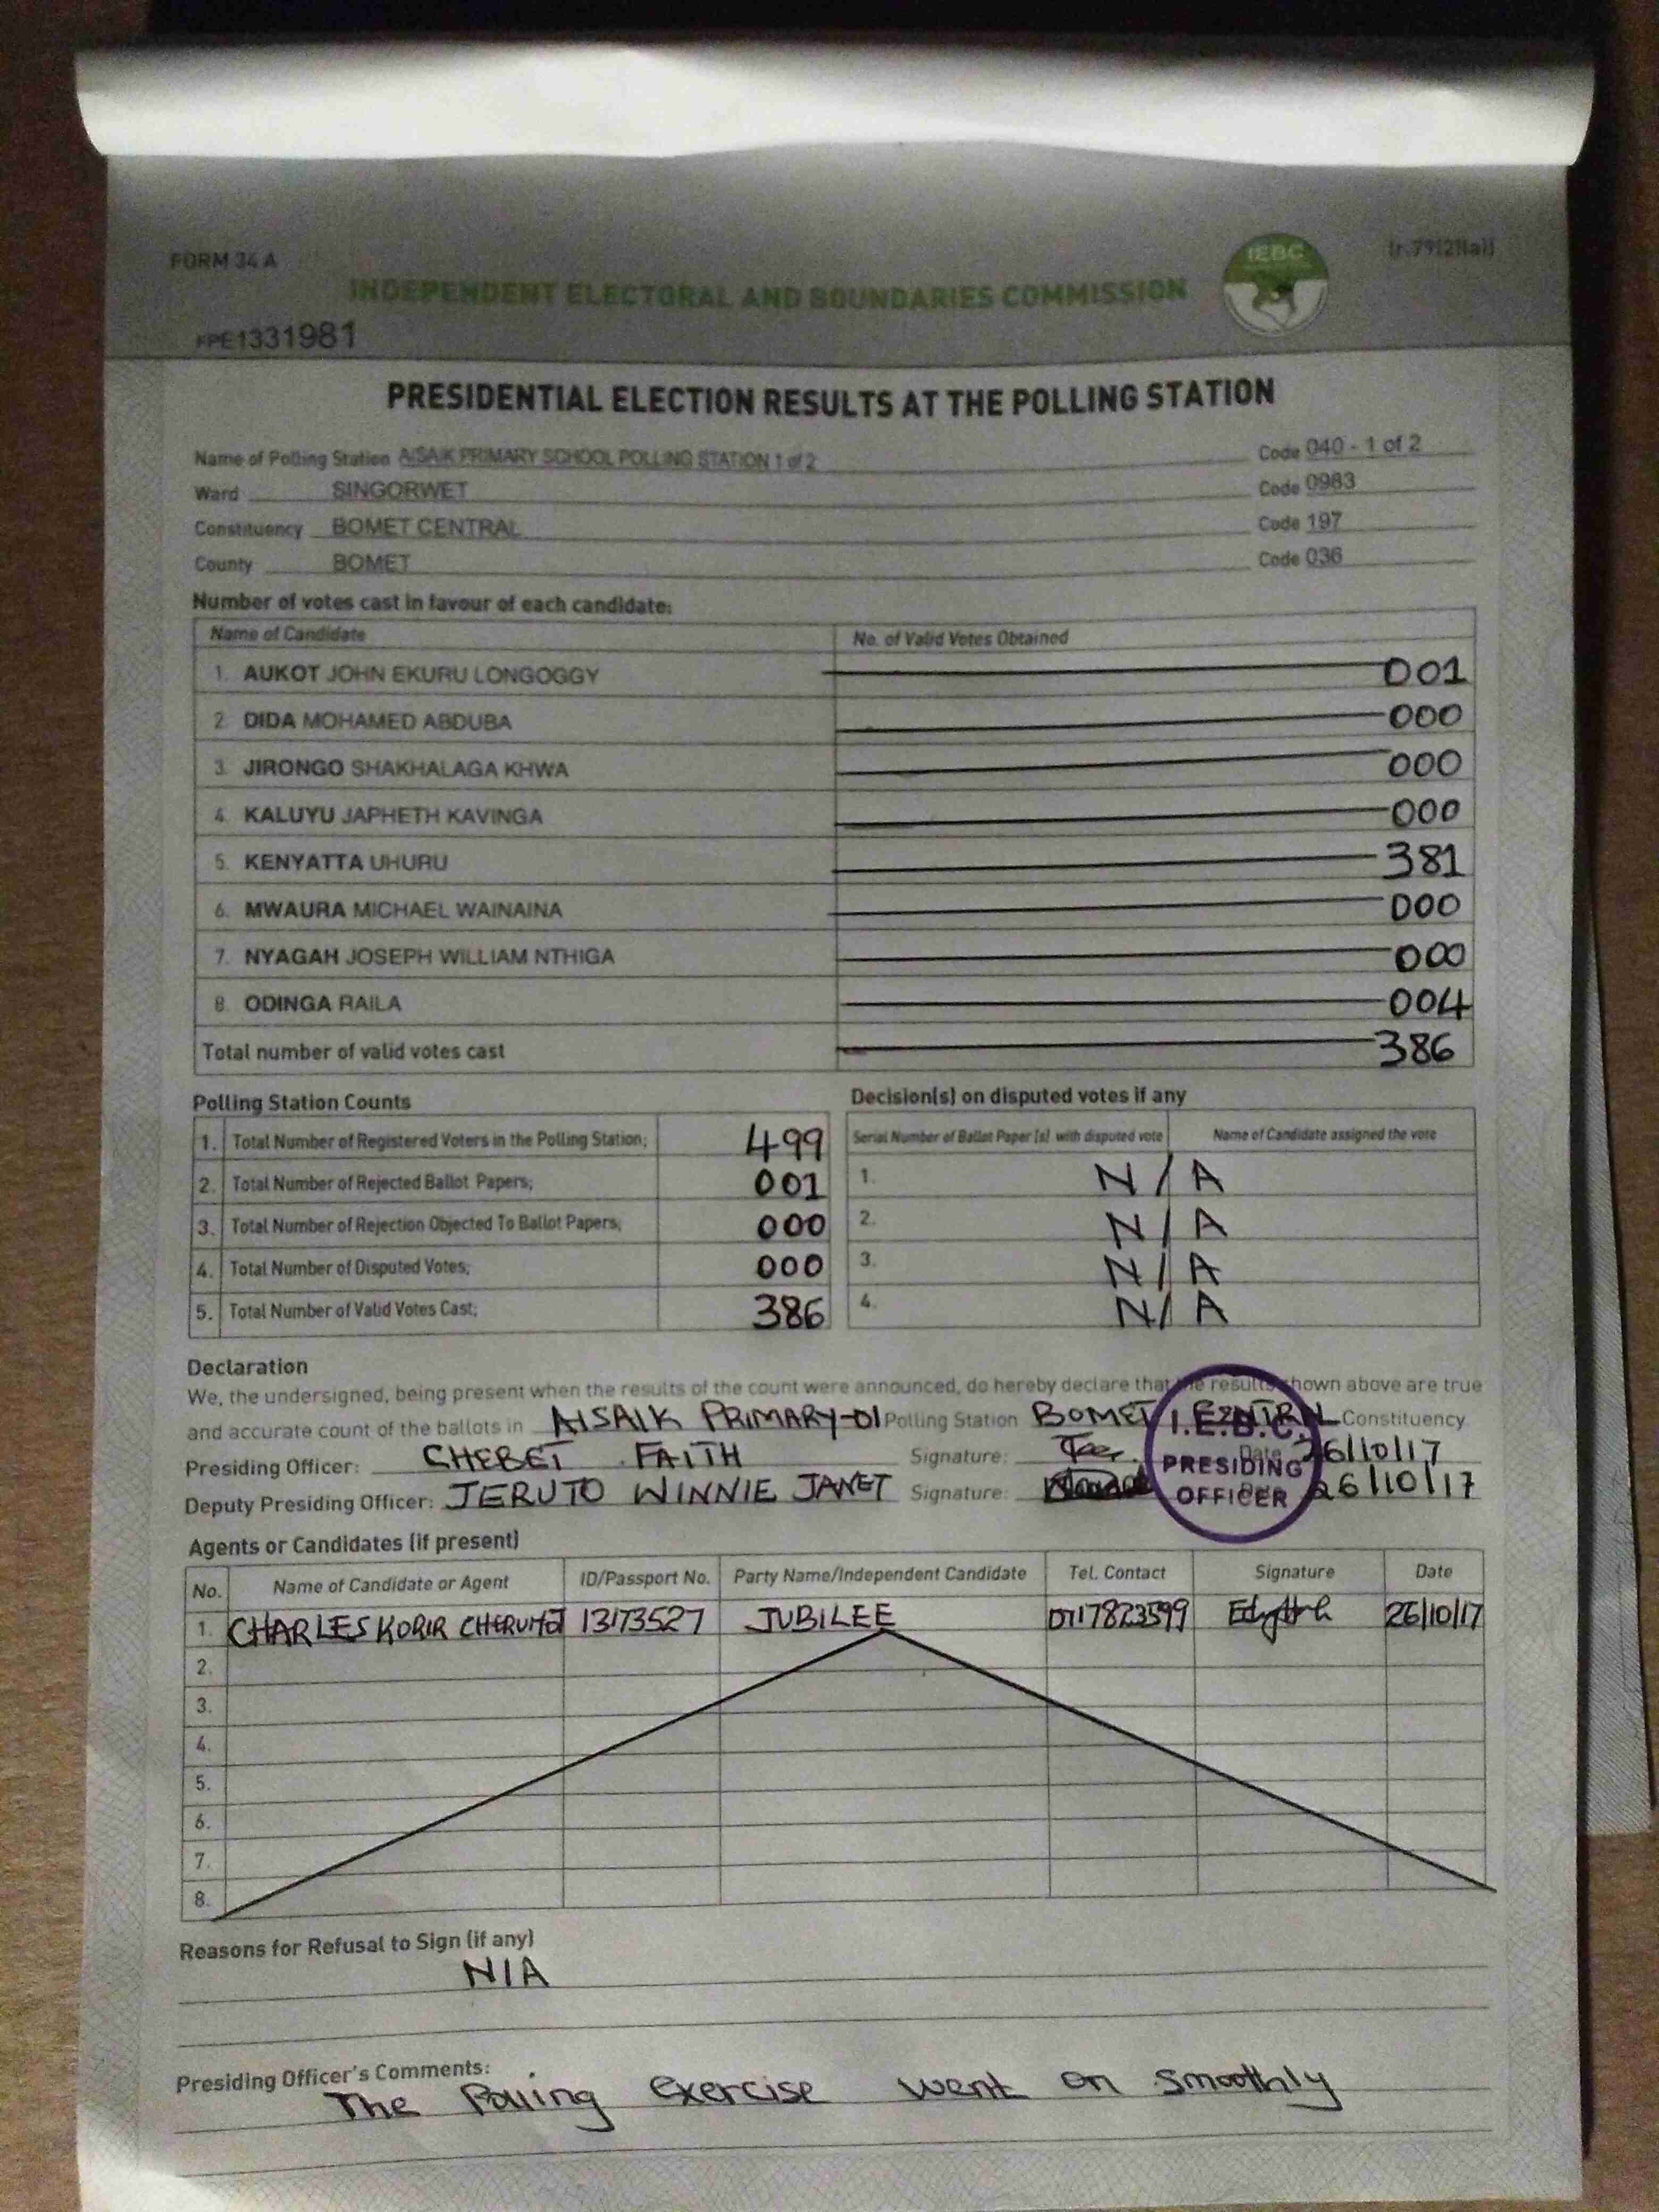 FORM 34 A
(r.79(2)(a))
IEBC
INDEPENDENT ELECTORAL AND BOUNDARIES COMMISSION
FPE1331981
PRESIDENTIAL ELECTION RESULTS AT THE POLLING STATION
Name of Polling Station AISAIK PRIMARY SCHOOL POLLING STATION 1 of 2 Code 040 - 1 of 2
Ward SINGORWET Code 0983
Constituency BOMET CENTRAL Code 197
County BOMET Code 036
Number of votes cast in favour of each candidate:
Name of Candidate No. of Valid Votes Obtained
1. AUKOT JOHN EKURU LONGOGGY 001
2. DIDA MOHAMED ABDUBA 000
3. JIRONGO SHAKHALAGA KHWA 000
4. KALUYU JAPHETH KAVINGA 000
5. KENYATTA UHURU 381
6. MWAURA MICHAEL WAINAINA 000
7. NYAGAH JOSEPH WILLIAM NTHIGA 000
8. ODINGA RAILA 004
Total number of valid votes cast 386
Polling Station Counts
1. Total Number of Registered Voters in the Polling Station; 499
2. Total Number of Rejected Ballot Papers; 001
3. Total Number of Rejection Objected To Ballot Papers; 000
4. Total Number of Disputed Votes; 000
5. Total Number of Valid Votes Cast; 386
Decision(s) on disputed votes if any
Serial Number of Ballot Paper (s) with disputed vote Name of Candidate assigned the vote
1. N/A
2. N/A
3. N/A
4. N/A
Declaration
We, the undersigned, being present when the results of the count were announced, do hereby declare that the results shown above are true
and accurate count of the ballots in AISAIK PRIMARY-01 Polling Station BOMET CENTRAL Constituency
Presiding Officer: CHEBET FAITH Signature: Date 26/10/17
Deputy Presiding Officer: JERUTO WINNIE JANET Signature: 26/10/17
I.E.B.C.
PRESIDING
OFFICER
Agents or Candidates (if present)
No. Name of Candidate or Agent ID/Passport No. Party Name/Independent Candidate Tel. Contact Signature Date
1. CHARLES KORIR 13173527 JUBILEE 0717823599 26/10/17
2.
3.
4.
5.
6.
7.
8.
Reasons for Refusal to Sign (if any)
N/A
Presiding Officer's Comments:
The Polling exercise went on smoothly